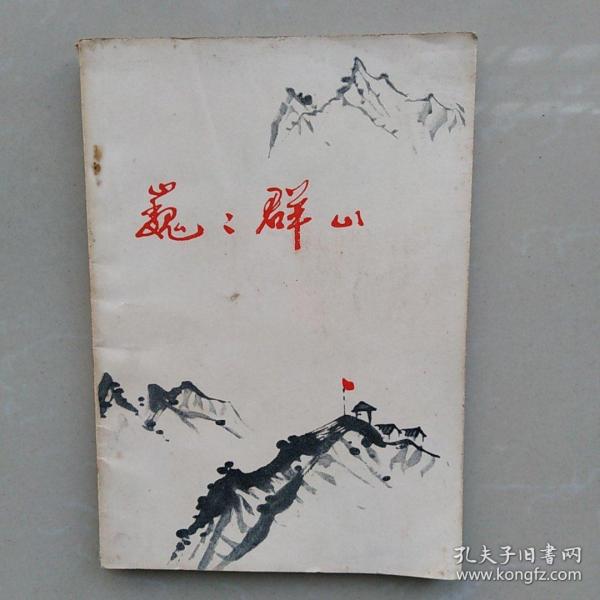 巍〻群山
孔夫子旧书网
www.kongfz.com